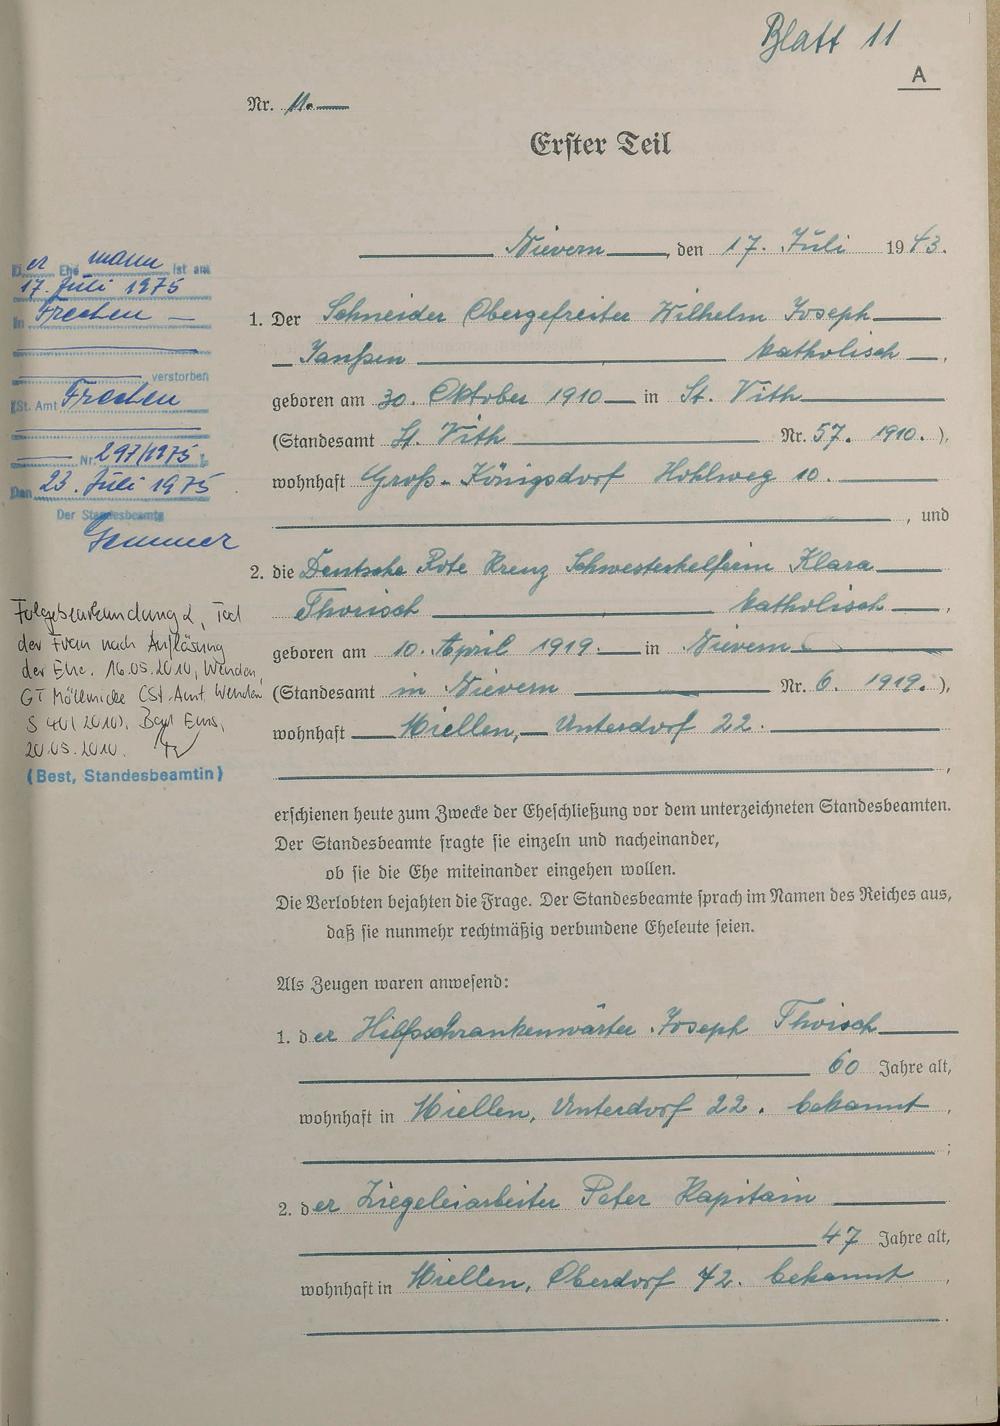 Blatt 11
A
Nr. 11.
Erster Teil
Nievern, den 17. Juli 1943.
1. Der Schneider Obergefreiter Wilhelm Joseph
Janßen katholisch,
geboren am 30. Oktober 1910 in St. Vith
(Standesamt St. Vith Nr. 57. 1910.),
wohnhaft Groß-Königsdorf Hohlweg 10.
, und
2. die Deutsche Rote Kreuz Schwesterhelferin Klara
Thorisch katholisch,
geboren am 10. April 1919. in Nievern
(Standesamt in Nievern Nr. 6. 1919.),
wohnhaft Miellen, Unterdorf 22.
,
erschienen heute zum Zwecke der Eheschließung vor dem unterzeichneten Standesbeamten.
Der Standesbeamte fragte sie einzeln und nacheinander,
ob sie die Ehe miteinander eingehen wollen.
Die Verlobten bejahten die Frage. Der Standesbeamte sprach im Namen des Reiches aus,
daß sie nunmehr rechtmäßig verbundene Eheleute seien.
Als Zeugen waren anwesend:
1. der Hilfsschrankenwärter Joseph Thorisch
60 Jahre alt,
wohnhaft in Miellen, Unterdorf 22. bekannt,
;
2. der Ziegeleiarbeiter Peter Kapitain
47 Jahre alt,
wohnhaft in Miellen, Oberdorf 42. bekannt,
.
Der Ehemann ist am
17. Juli 1975
in Frechen
verstorben
(St. Amt Frechen
Nr. 297/1975).
Den 23. Juli 1975
Der Standesbeamte
Folgebeurkundung 2, Tod
der Frau nach Auflösung
der Ehe. 16.05.2010, Wenden,
GT Möllmicke (St. Amt Wenden
S 40/2010). Bad Ems,
20.05.2010.
(Best, Standesbeamtin)